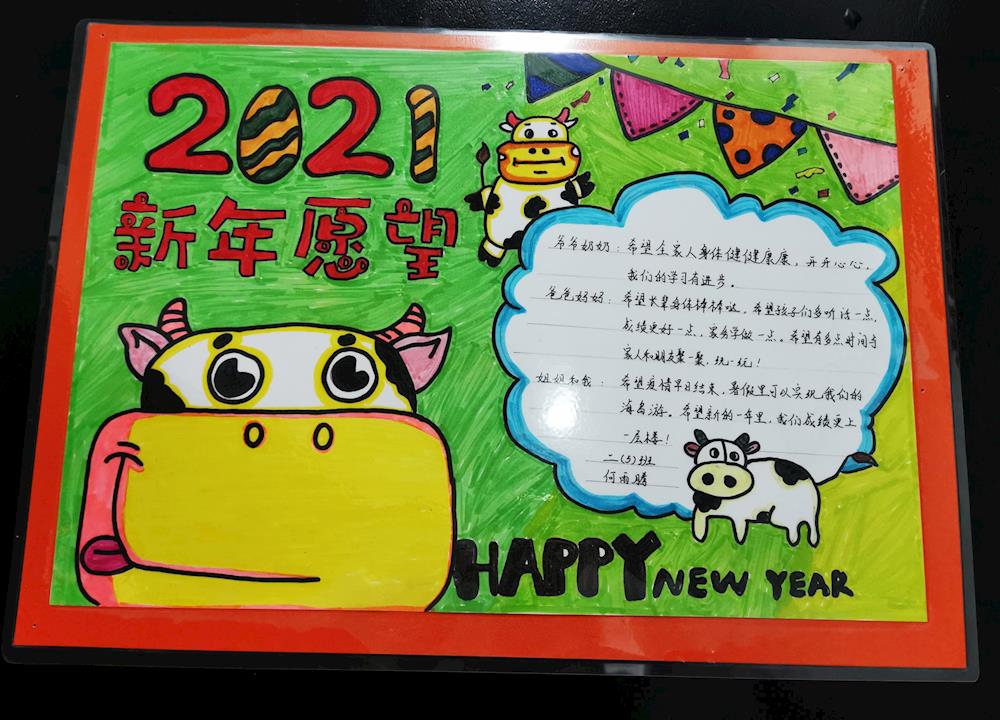 2021
新年愿望
爷爷奶奶：希望全家人身体健健康康，开开心心，
我们的学习有进步。
爸爸妈妈：希望长辈身体棒棒哒，希望孩子们多听话一点，
成绩更好一点，家务学做一点。希望有多点时间与
家人和朋友聚一聚，玩一玩！
姐姐和我：希望疫情早日结束，暑假里可以实现我们的
海岛游。希望新的一年里，我们成绩更上
一层楼！
二(5)班
何雨腾
HAPPY NEW YEAR